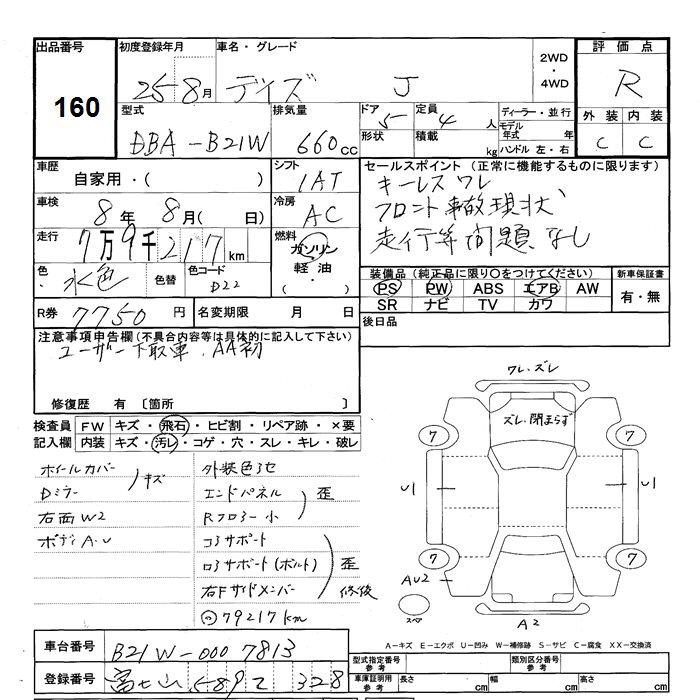 出品番号
160
初度登録年月
25年8月
車名・グレード
デイズ J
2WD
・
4WD
評価点
R
外装 内装
C C
型式
DBA-B21W
排気量
660cc
ドア 5
形状
定員 4人
積載 kg
ディーラー・並行
モデル年式 年
ハンドル 左・右
車歴
自家用・( )
シフト
IAT
車検
8年 8月( 日)
冷房
AC
走行
7万9千217km
燃料
ガソリン
軽油・
色
水色
色替
色コード
D22
セールスポイント(正常に機能するものに限ります)
キーレス ワレ
フロント事故現状
走行等問題なし
装備品(純正品に限り○をつけてください)
PS PW ABS エアB AW
SR ナビ TV カワ
新車保証書
有・無
R券 7750円
名変期限 月 日
後日品
注意事項申告欄(不具合内容等は具体的に記入して下さい)
ユーザー下取車.AA初
修復歴 有〔箇所 〕
検査員 FW キズ・飛石・ヒビ割・リペア跡・×要
記入欄 内装 キズ・汚レ・コゲ・穴・スレ・キレ・破レ
ホイールカバー
Dミラー
キズ
右面W2
ボディA.U
外装色3セ
エンドパネル
Rフロアー小
歪
コアサポート
ロアサポート(ボルト)
右Fサイドメンバー
歪
修後
79217km
ワレ・ズレ
ズレ・閉まらず
7
7
U1
U1
7
7
AU2
スペア
A2
A-キズ E-エクボ U-凹み W-補修跡 S-サビ C-腐食 XX-交換済
車台番号
B21W-0007813
登録番号
富士山 589 328
型式指定番号
参考
類別区分番号
参考
車庫証明用
参考
長さ cm
幅 cm
高さ cm